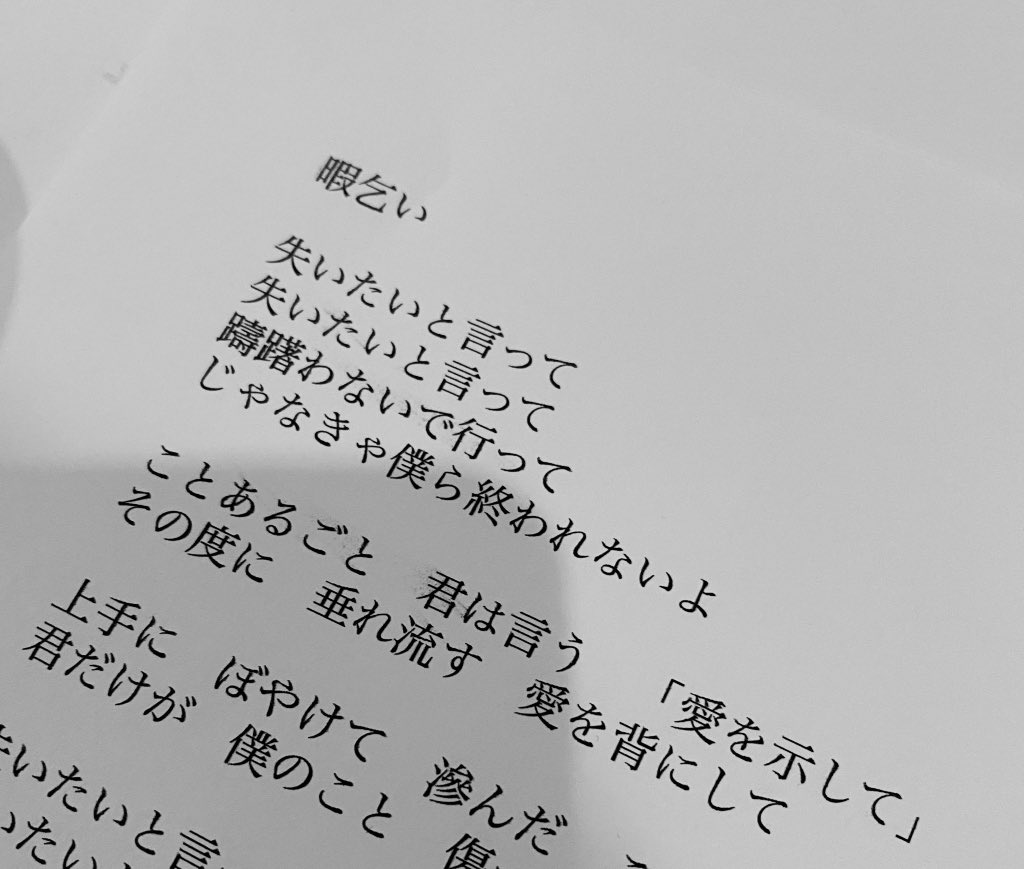 暇乞い
失いたいと言って
失いたいと言って
躊躇わないで行って
じゃなきゃ僕ら終われないよ
ことあるごと　君は言う　「愛を示して」
その度に　垂れ流す　愛を背にして
上手に　ぼやけて　滲んだ
君だけが　僕のこと　傷
いたいと言
いたい